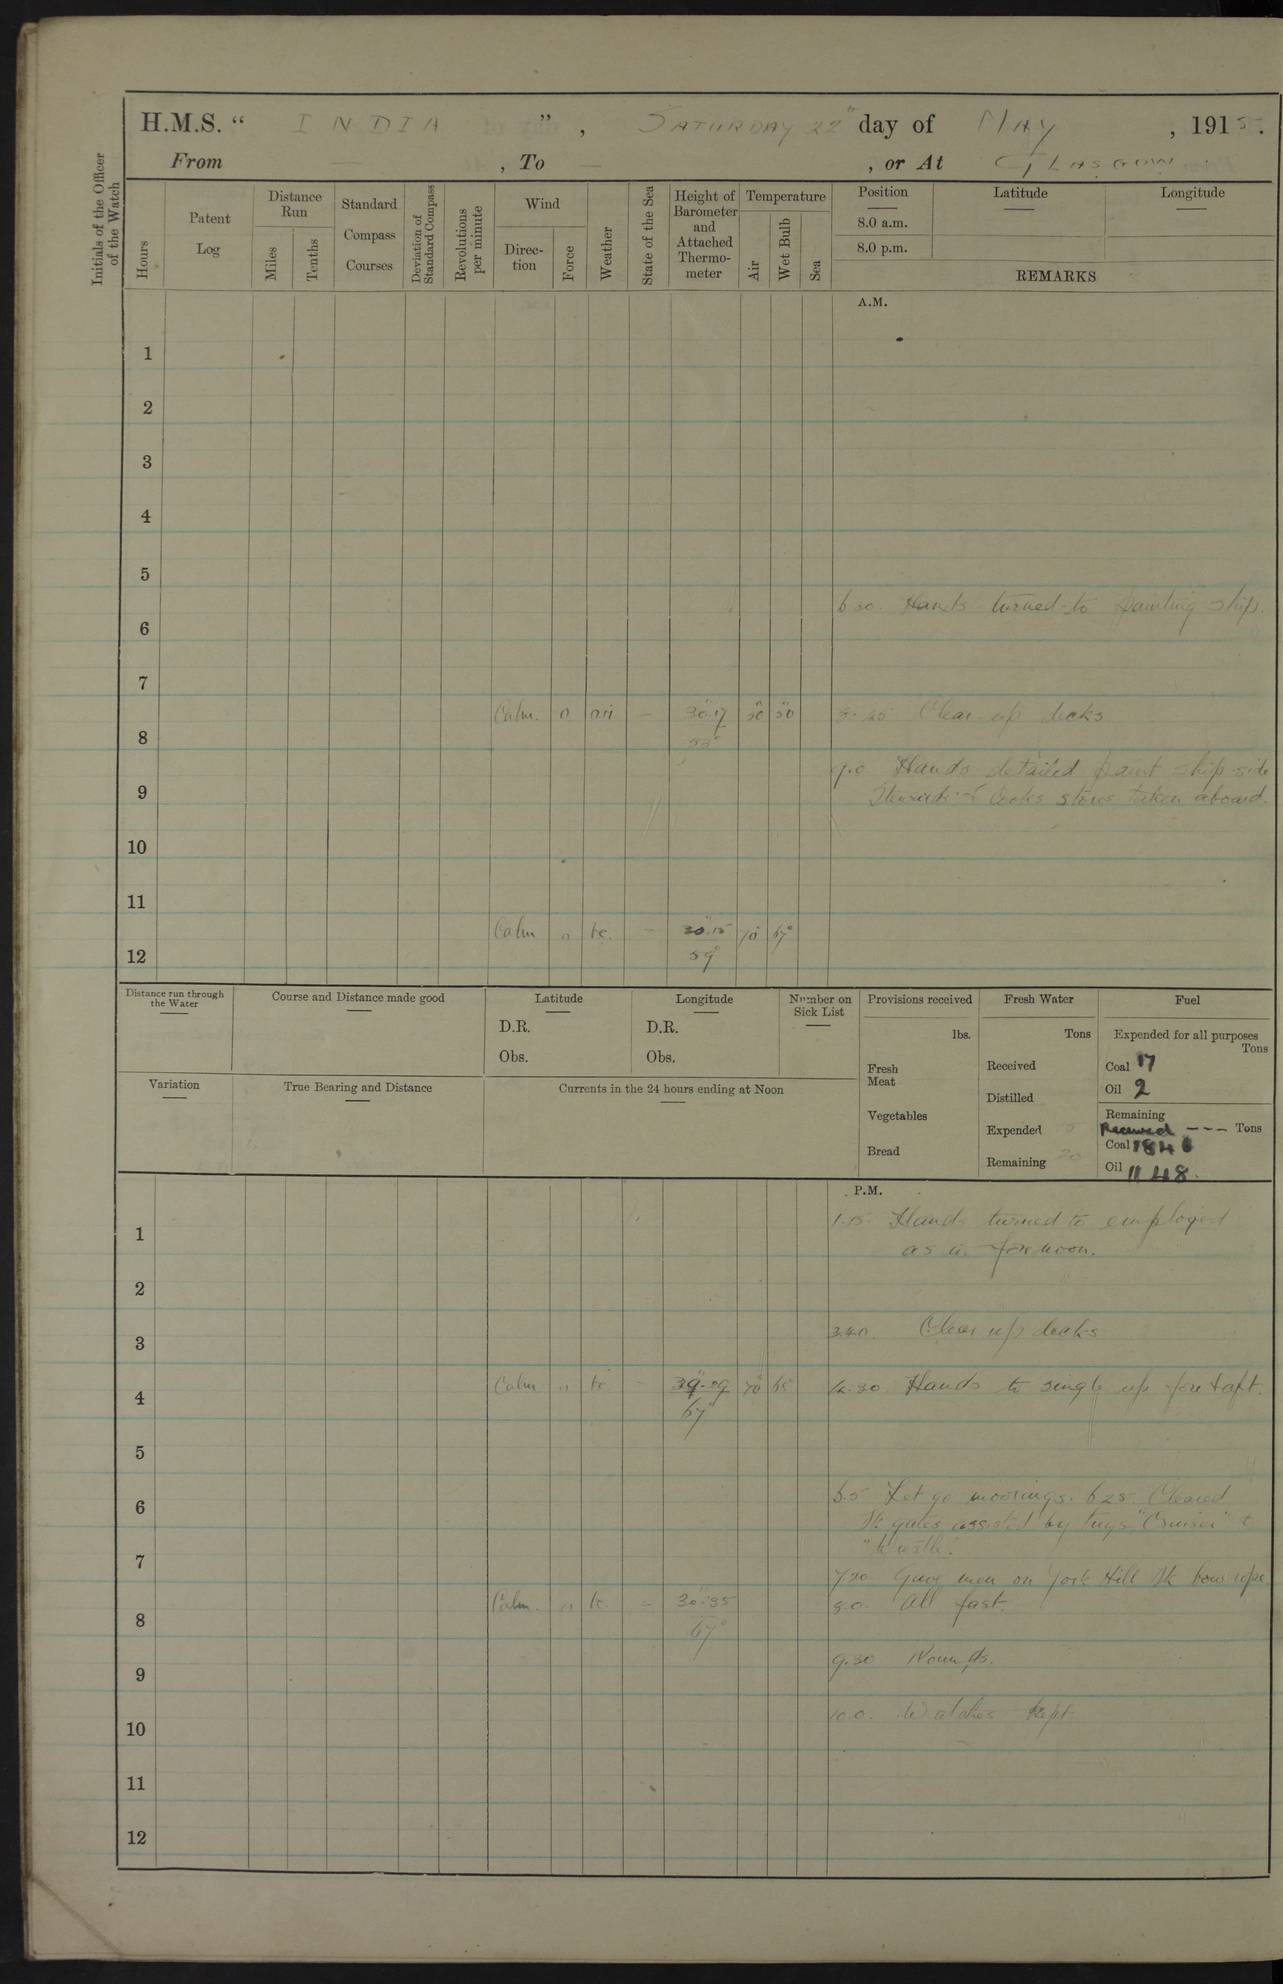 H.M.S. “ INDIA ” , SATURDAY 22" day of MAY , 1915.
From — , To — , or At GLASGOW.
Initials of the Officer of the Watch
Hours
Patent Log
Distance Run
Miles
Tenths
Standard Compass Courses
Deviation of Standard Compass
Revolutions per minute
Wind
Direction
Force
Weather
State of the Sea
Height of Barometer and Attached Thermometer
Temperature
Air
Wet Bulb
Sea
Position
8.0 a.m.
8.0 p.m.
Latitude
Longitude
REMARKS
A.M.
1
2
3
4
5
6.30. Hands turned-to painting ship.
6
7
Calm. 0 — 30.17 50 50 Clear up decks
8
9.0 Hands detailed paint ship side
9
cooks stores taken aboard.
10
11
Calm 0 bc. — 30.15 70 67°
12 59°
Distance run through the Water
Course and Distance made good
Latitude
D.R.
Obs.
Longitude
D.R.
Obs.
Number on Sick List
Provisions received
lbs.
Fresh Meat
Vegetables
Bread
Fresh Water
Tons
Received
Distilled
Expended
Remaining 20
Fuel
Expended for all purposes
Tons
Coal 17
Oil 2
Remaining
Received --- Tons
Coal
Oil 1148.
Variation
True Bearing and Distance
Currents in the 24 hours ending at Noon
P.M.
1.15. Hands turned to employed
1
as in forenoon.
2
3.40. Clear up decks
3
Calm bc 70 4.30 Hands to single up fore & aft.
4 67°
5
6.5 Let go moorings. 6.25 Cleared
6
dk gates assisted by tugs "Cruiser" &
7
7.20 Gave men on York Hill dk bow rope
Calm. bc. — 8.0. All fast.
8 67°
9.30 Rounds.
9
10.0. Watches kept.
10
11
12